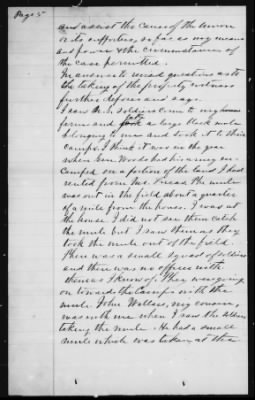 Page 5
and assist the cause of the Union
or its supporters, so far as my means
and power & the circumstances of
the case permitted.
In answer to several questions as to
the taking of the property witness
further deposes and says.
I saw the soldiers come to my
farm and take a large black mule
belonging to me and took it to their
camps. I think it was in the year
when Gen. Woods had his army en-
camped on a portion of the land I had
rented from The mule
was out in the field about a quarter
of a mile from the house. I was at
the house. I did not see them catch
the mule but I saw them as they
took the mule out of the field.
There was a small squad of soldiers
and there was no officer with
them as I know of. They were going
on towards the camps with the
mule. John Wallace, my cousin,
was with me when I saw the soldiers
taking the mule. He had a small
mule which was taken at the